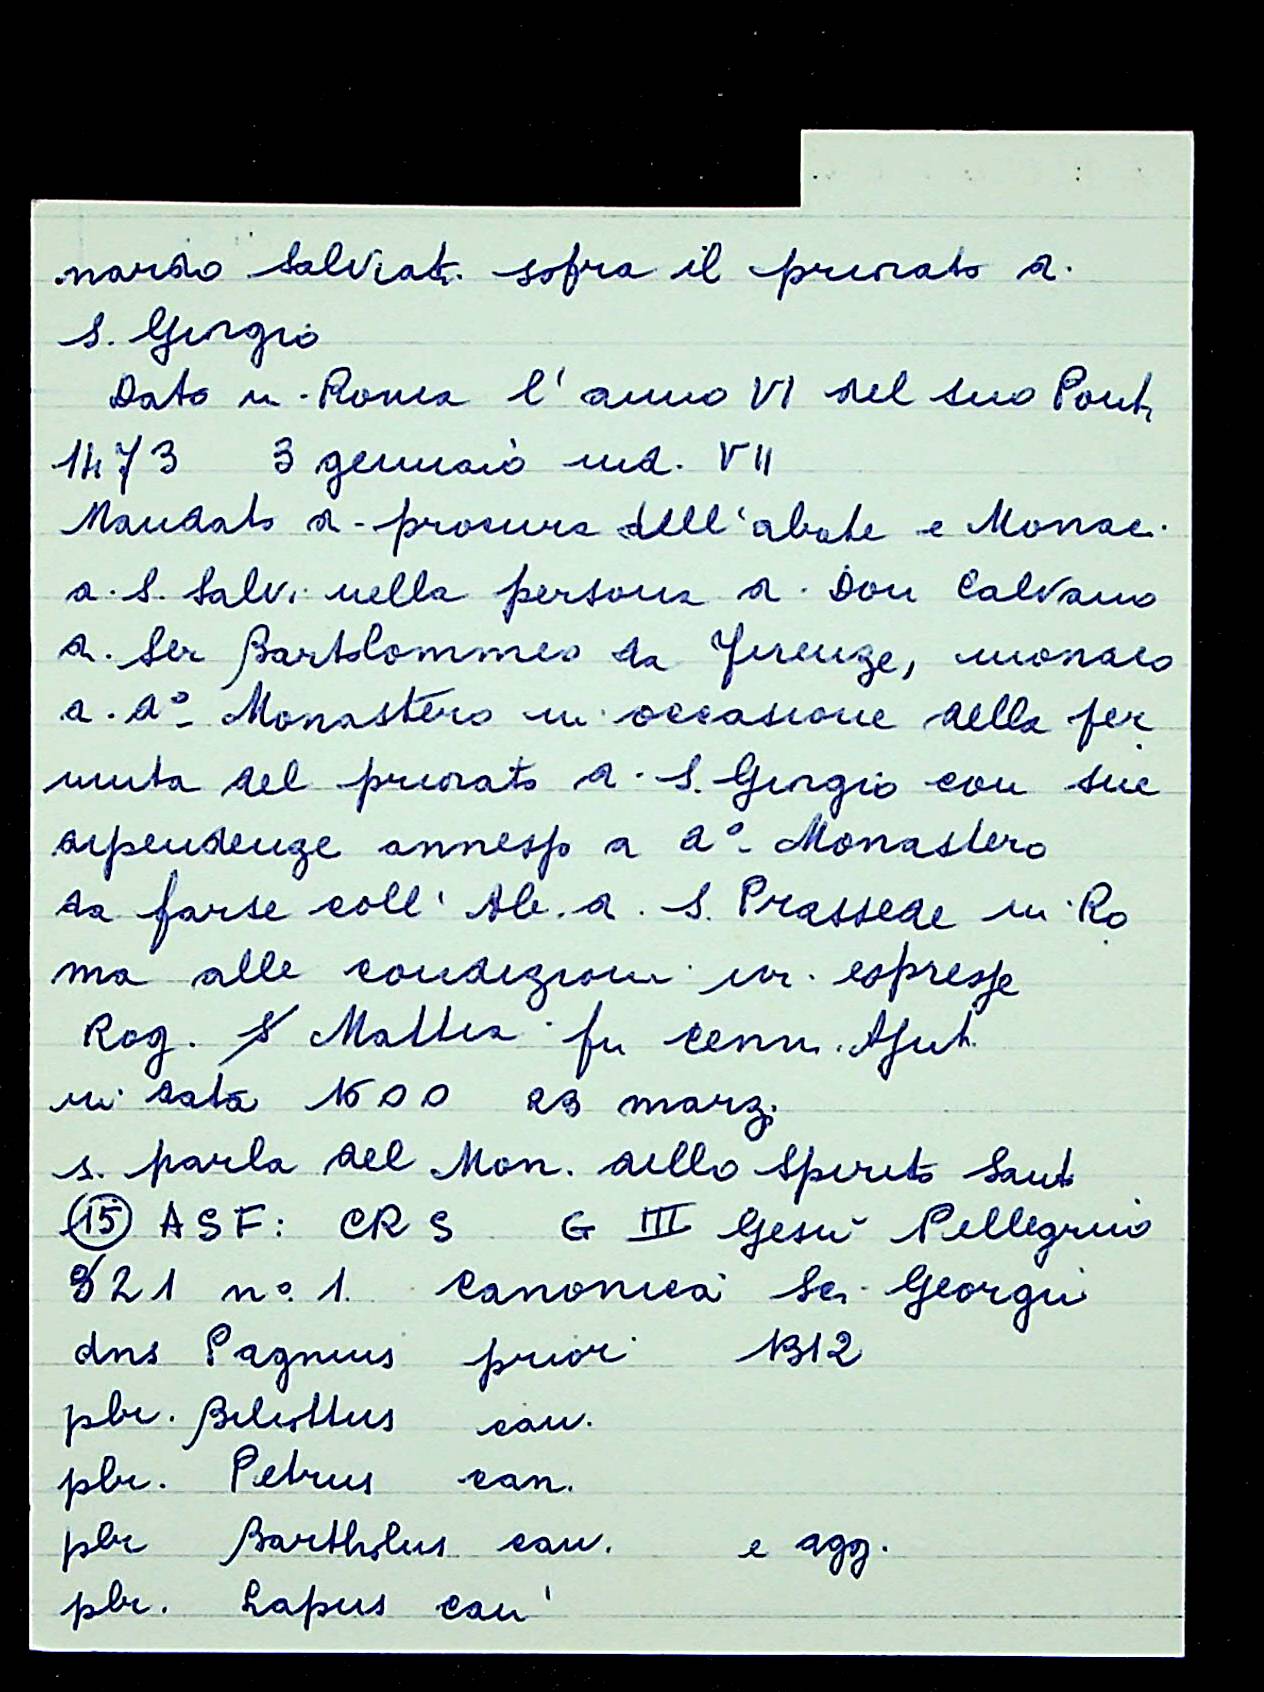 nardo Salviati sopra il priorato di
S. Giorgio
Dato in Roma l'anno VI del suo Pont.
1473 3 gennaio ind. VII
Mandato di procura dell'abate e Monaci
di S. Salvi nella persona di Don Calvano
di Ser Bartolommeo da Firenze, monaco
di do Monastero in occasione della per
muta del priorato di S. Giorgio con sue
dipendenze annesso a do Monastero
da farsi coll' Ab. di S. Prassede in Ro
ma alle condizioni ivi espresse
Rog. S Mattia fu Cenni
in data 1500 23 marz.
si parla del Mon. dello Spirito Santo
(15) ASF: CRS G III Gesù Pellegrino
321 no. 1. canonica Sci. Georgii
dns Pagnius prior 1312
pbr. Biliottus can.
pbr. Petrus can.
pbr Bartholus can. e agg.
pbr. Lapus can